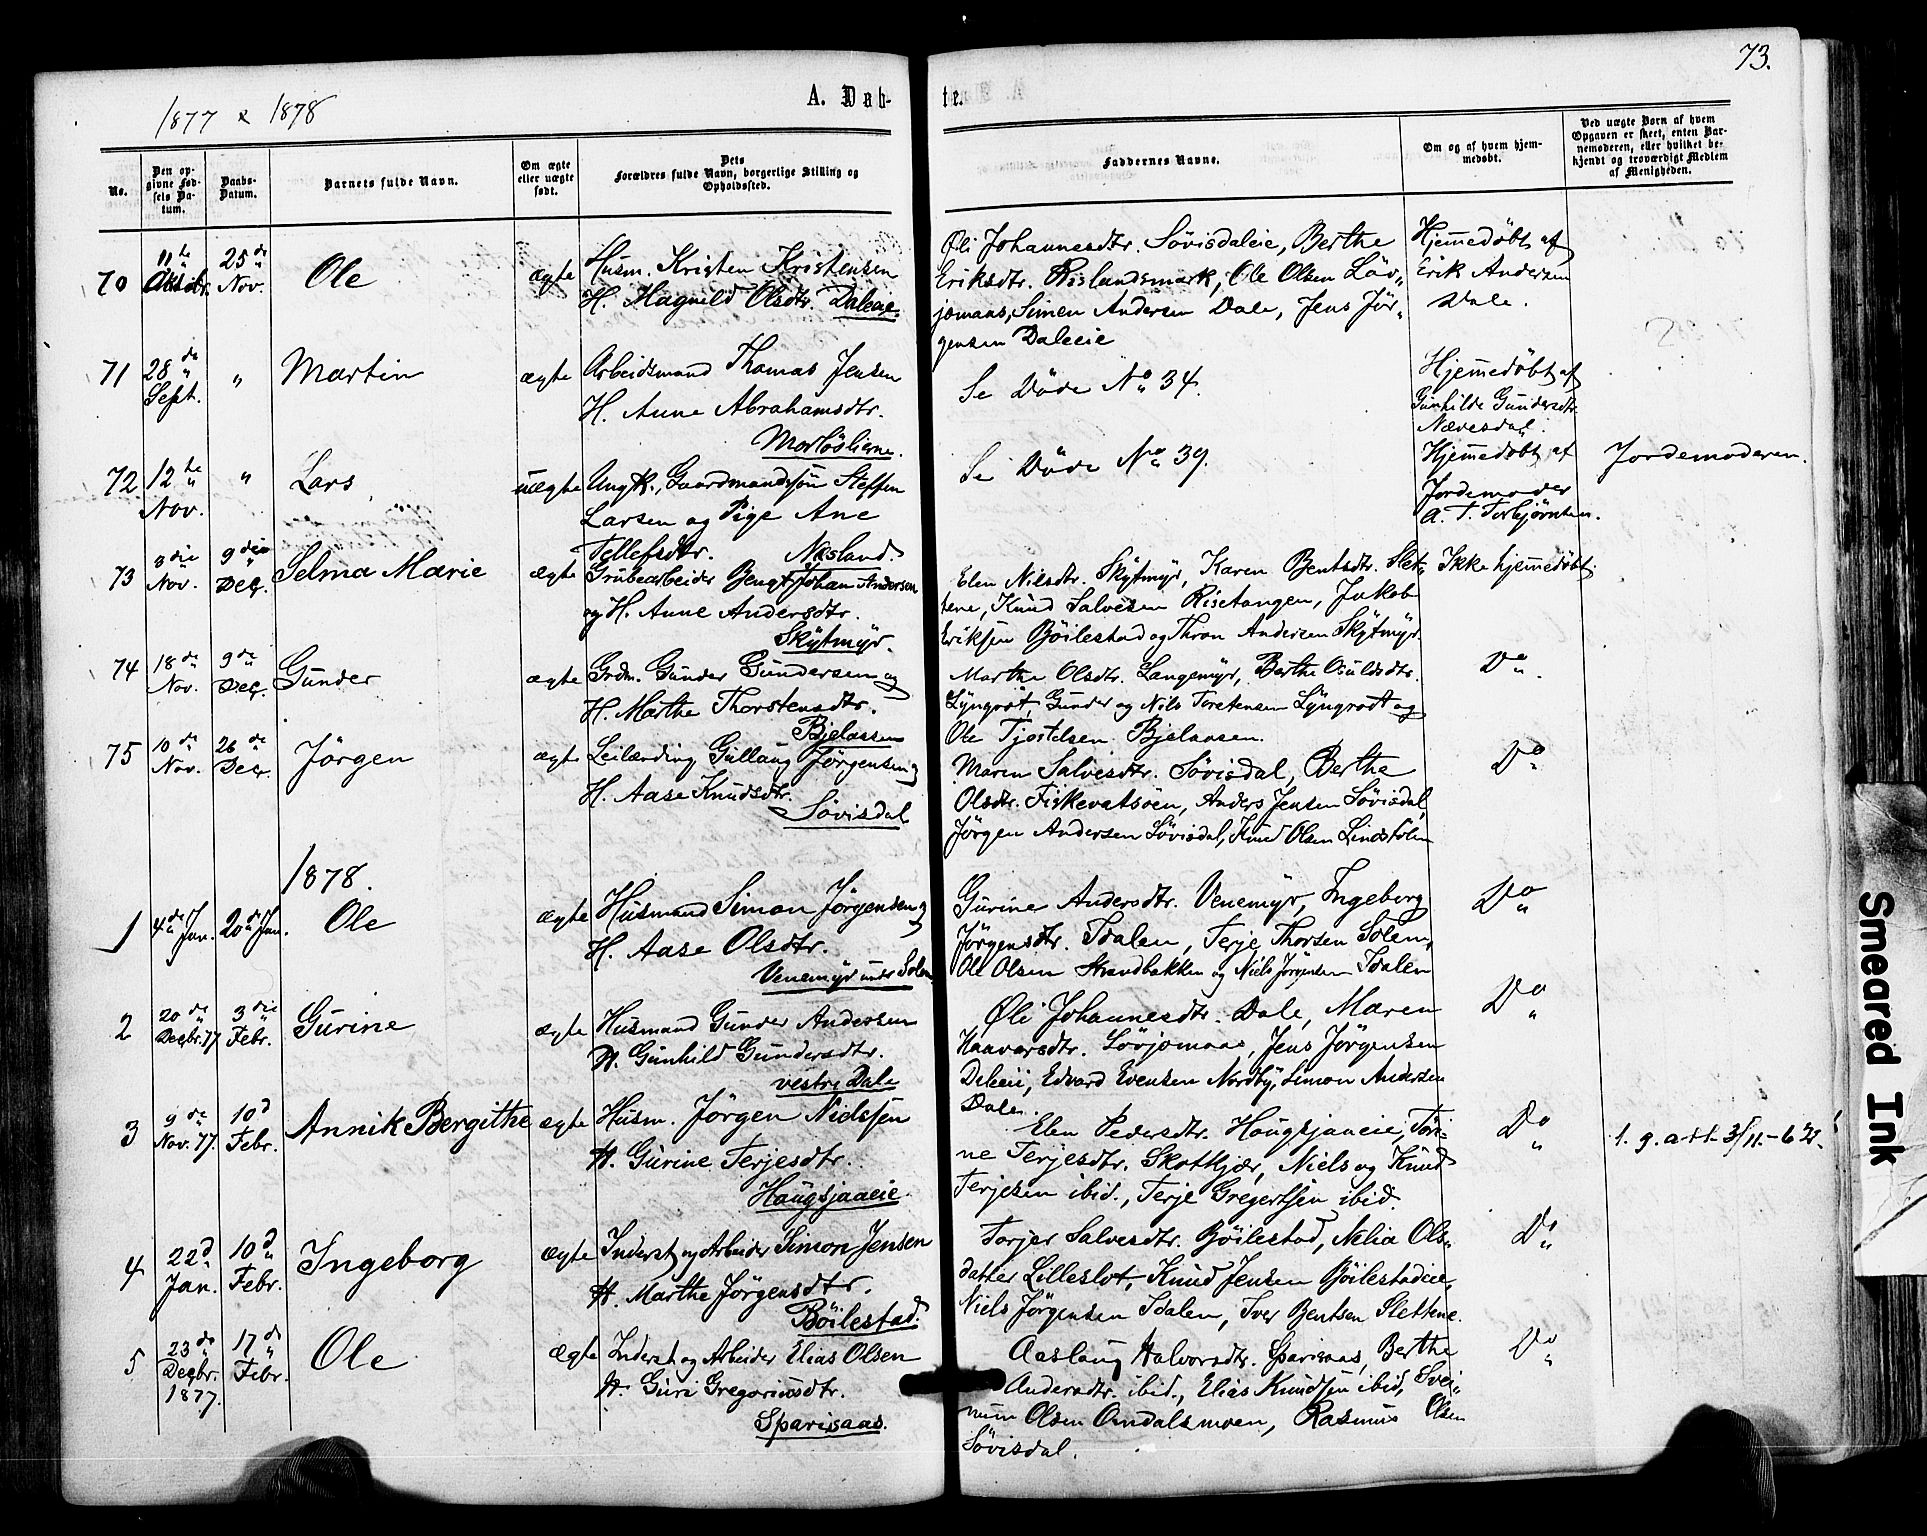 73.
1877 & 1878
A. Døb-
te.
No.
Den op-
givne Fød-
sels Da-
tum.
Daabs-
Datum.
Barnets fulde Navn.
Om ægte
eller uægte
født.
Dets
Forældres fulde Navn, borgerlige Stilling og
Opholdssted.
Faddernes Navne.
Om og af hvem hjem-
medøbt.
Ved uægte Børn af hvem
Opgaven er skeet, enten Bar-
nemoderen, eller hvilket be-
kjendt og troværdigt Medlem
af Menigheden.
70
11te
Oktbr.
25de
Nov.
Ole
ægte
Husm. Kristen Kristensen
H. Hagnild Olsdtr. Daleeie.
Øli Johannesdtr. Sövisdaleie, Berthe
Eriksdtr. Rislandsmark, Ole Olsen Löv-
jomaas, Simen Andersen Dale, Jens Jör-
gensen Daleeie
Hjemmedöbt af
Erik Andersen
Dale.
71
28de
Sept.
"
Martin
ægte
Arbeidsmand Thomas Jensen
H. Anne Abrahamsdtr.
Morlöslierne.
Se Döde No 34.
Hjemmedöbt af
Gunhilde Gundersdtr.
Nævesdal.
72
12te
Nov.
"
Lars
uægte
Ungk., Gaardmandssön Steffen
Larsen og Pige Ane
Tellefsdtr. Næsland.
Se Döde No 39.
Hjemmedöbt af
Jordemoder
A. T. Torbjörnsen.
Jordemoderen.
73
3die
Nov.
9die
Dec.
Selma Marie
ægte
Grubearbeider Bengt Johan Andersen
og H. Anne Andersdtr.
Skytmyr.
Elen Nilsdtr. Skytmyr, Karen Bentsdtr. Slet-
tene, Knud Salvesen Risetangen, Jakob
Eriksen Böilestad og Thron Andersen Skytmyr.
Ikke hjemmedöbt.
74
18de
Nov.
9de
Dec.
Gunder
ægte
Grdm. Gunder Gundersen og
H. Marthe Thorstensdtr.
Bjelaasen
Marthe Olsdtr. Langemyr, Berthe Osuldsdtr.
Lyngrot, Gunder og Nils Torstensen Lyngrodt og
Ole Tjostelsen Bjelaasen.
Do
75
10de
Nov.
26de
Dec.
Jörgen
ægte
Leilænding Gullaug Jörgensen og
H. Aase Knudsdtr.
Sövisdal
Maren Salvesdtr. Sövisdal, Berthe
Olsdtr. Fiskevatsöen, Anders Jensen Sövisdal,
Jörgen Andersen Sövisdal, Knud Olsen Lindstölen
Do
1878.
1
4de Jan.
20de Jan.
Ole
ægte
Husmand Simon Jörgensen og
H. Aase Olsdtr.
Venemyr under Solem
Gurine Andersdtr. Venemyr, Ingeborg
Jörgensdtr. Idalen, Terje Thorsen Solem,
Ole Olsen Strandbakken og Niels Jörgensen Idalen
Do
2
20de
Decbr. 77
3die
Febr.
Gurine
ægte
Husmand Gunder Andersen
H. Gunhild Gundersdtr.
vestre Dale
Øli Johannesdtr. Dale, Maren
Haavarsdtr. Lövjomaas, Jens Jörgensen
Daleeie, Edvard Evensen Nordby, Simon Andersen
Dale.
Do
3
9de
Nov. 77.
10d
Febr.
Annik Bergithe
ægte
Husm. Jörgen Nielssen
H. Gurine Terjesdtr.
Haugsjaaeie.
Elen Pedersdtr. Haugsjaaeie, Tori-
ne Terjesdtr. Skotkjær, Niels og Knud
Terjesen ibid., Terje Gregertsen ibid.
Do
1. g. att. 3/11.-621.
4
22d
Jan.
10d
Febr.
Ingeborg
ægte
Inderst og Arbeider Simon Jensen
H. Marthe Jörgensdtr.
Böilestad.
Torjer Salvesdtr. Böilestad, Nelia Ols-
datter Lilleslot, Knud Jensen Böilestadeie,
Niels Jörgensen Idalen, Iver Bentsen Slettene.
Do
5
23de
Decbr.
1877.
17de
Febr.
Ole
ægte
Inderst og Arbeider Elias Olsen
H. Guri Gregoriusdtr.
Sparisaas.
Aaslaug Halvorsdtr. Sparisaas, Berthe
Andersdtr. ibid., Elias Knudsen ibid, Svei-
num Olsen Omdalsmoen, Rasmus Olsen
Sövisdal.
Do
Smeared Ink